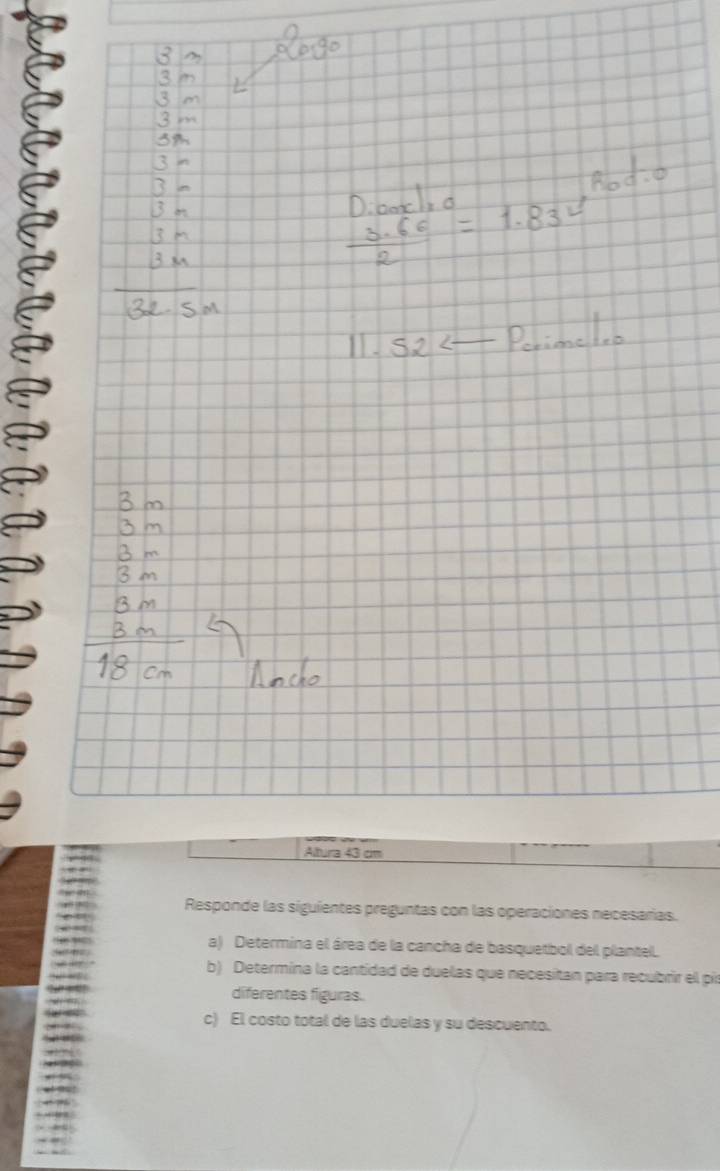 3 m
Largo
3 m
3 m
3 m
3 m
3 m
3 m
3 m
3 m
3 m
32.5 m
Diametro
Radio
3.66 / 2 = 1.83
11.52 ← Perimetro
3 m
3 m
3 m
3 m
3 m
3 m
18 cm
Ancho
Altura 43 cm
Responde las siguientes preguntas con las operaciones necesarias.
a) Determina el área de la cancha de basquetbol del plantel.
b) Determina la cantidad de duelas que necesitan para recubrir el pis
diferentes figuras.
c) El costo total de las duelas y su descuento.